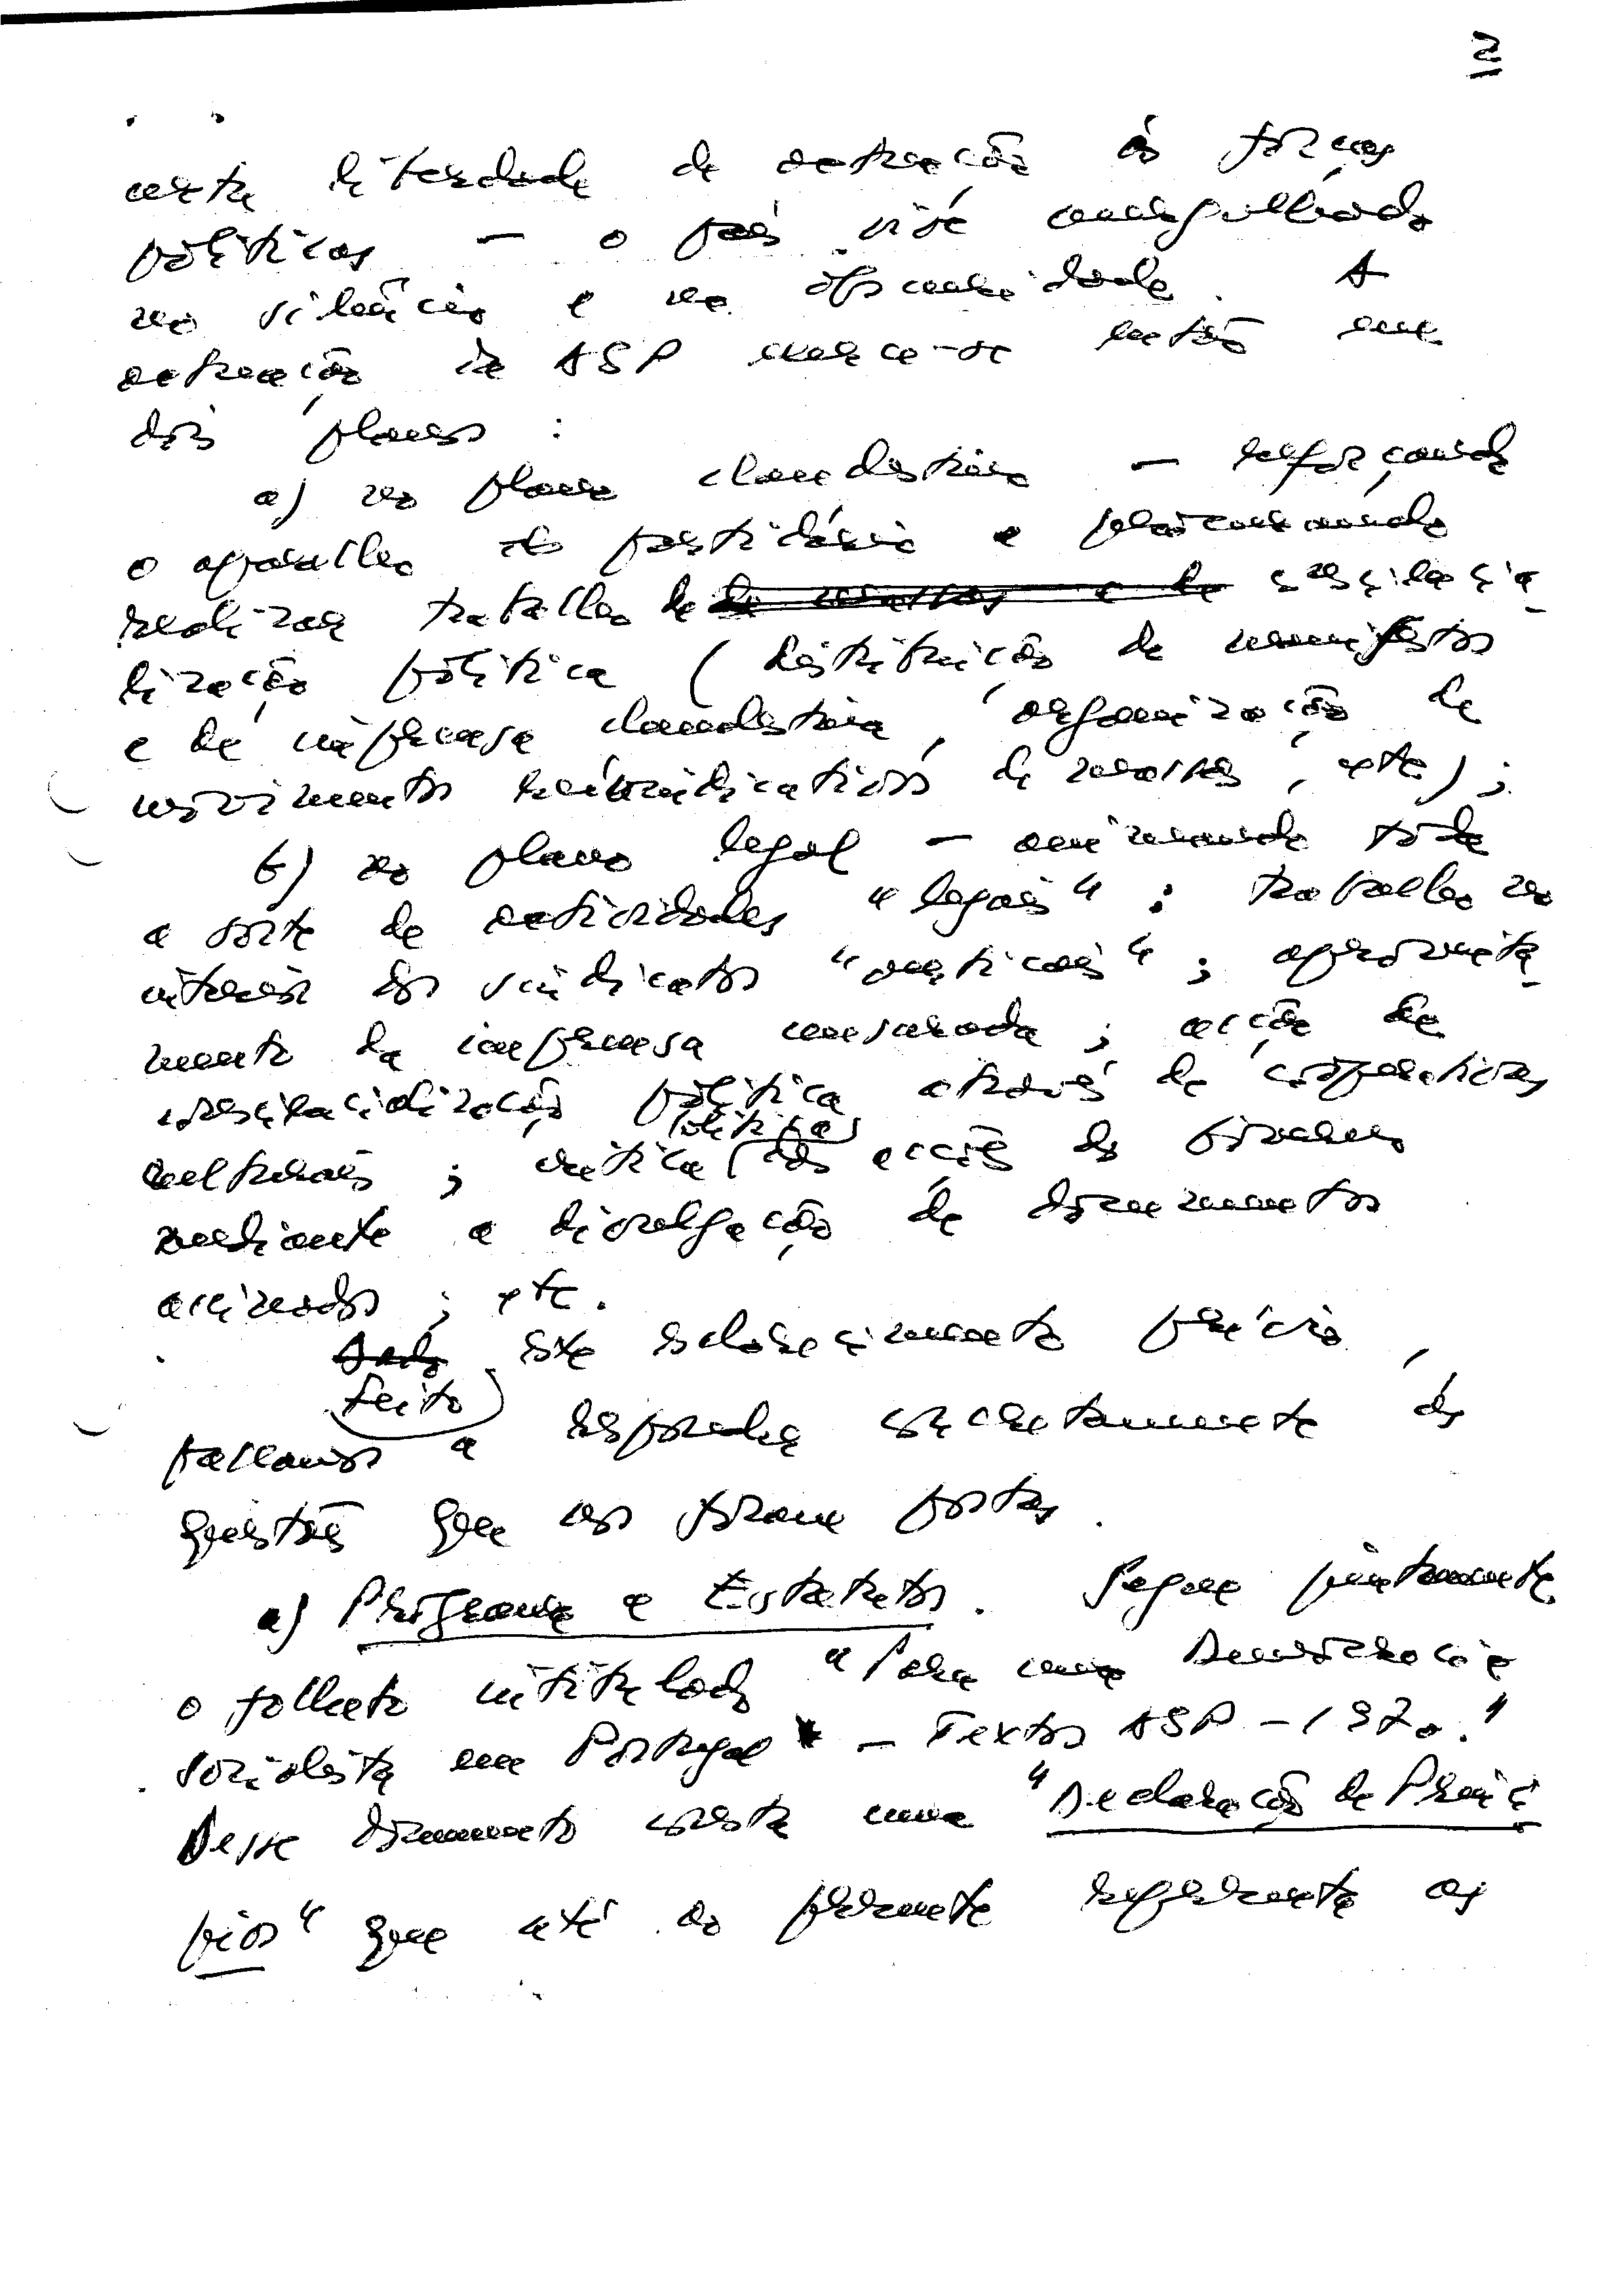 2
certa liberdade de actuação às forças
políticas — o país vive mergulhado
no silêncio e na obscuridade. A
actuação da ASP exerce-se então em
dois planos:
a) no plano clandestino — reforçando
o aparelho partidário e procurando
realizar trabalho de consciencia-
lização política (distribuição de manifestos
e de imprensa clandestina, organização de
movimentos reivindicativos de massas, etc);
b) no plano legal — animando toda
a sorte de actividades "legais": trabalho no
interior dos sindicatos "verticais"; aproveita-
mento da imprensa censurada; acção de
consciencialização política através de cooperativas
culturais; crítica política às acções do Governo
mediante a divulgação de documentos
assinados; etc.
Feito este esclarecimento prévio,
passamos a responder concretamente às
questões que nos foram postas.
a) Programa e Estatutos. Segue juntamente
o folheto intitulado "Para uma Democracia
Socialista em Portugal — Textos ASP – 1970."
Desse documento consta uma "Declaração de Princí-
pios" que até ao presente representa os